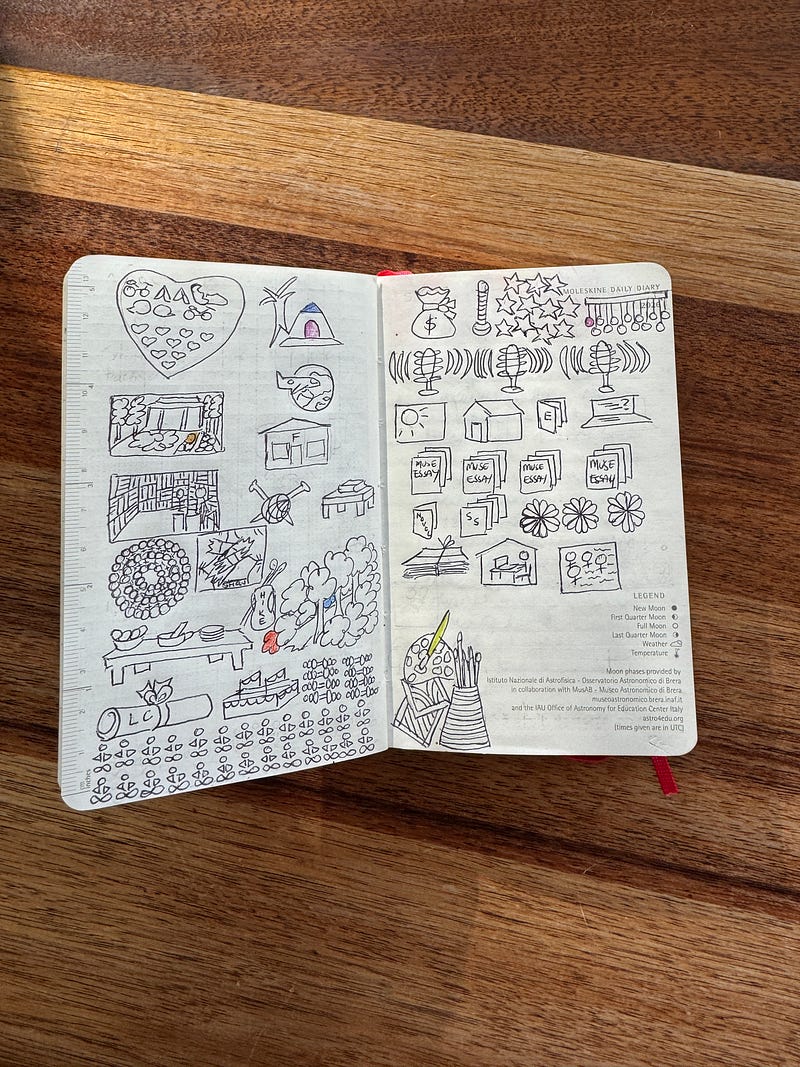 LC
HIKE
SHOW
MOLESKINE DAILY DIARY
$
E
?
MUSE ESSAY
MUSE ESSAY
MUSE ESSAY
MUSE ESSAY
SS
LEGEND
New Moon
First Quarter Moon
Full Moon
Last Quarter Moon
Weather
Temperature
Moon phases provided by
Istituto Nazionale di Astrofisica - Osservatorio Astronomico di Brera
in collaboration with MusAB - Museo Astronomico di Brera
museoastronomico.brera.inaf.it
and the IAU Office of Astronomy for Education Center Italy
astro4edu.org
(times given are in UTC)
inches